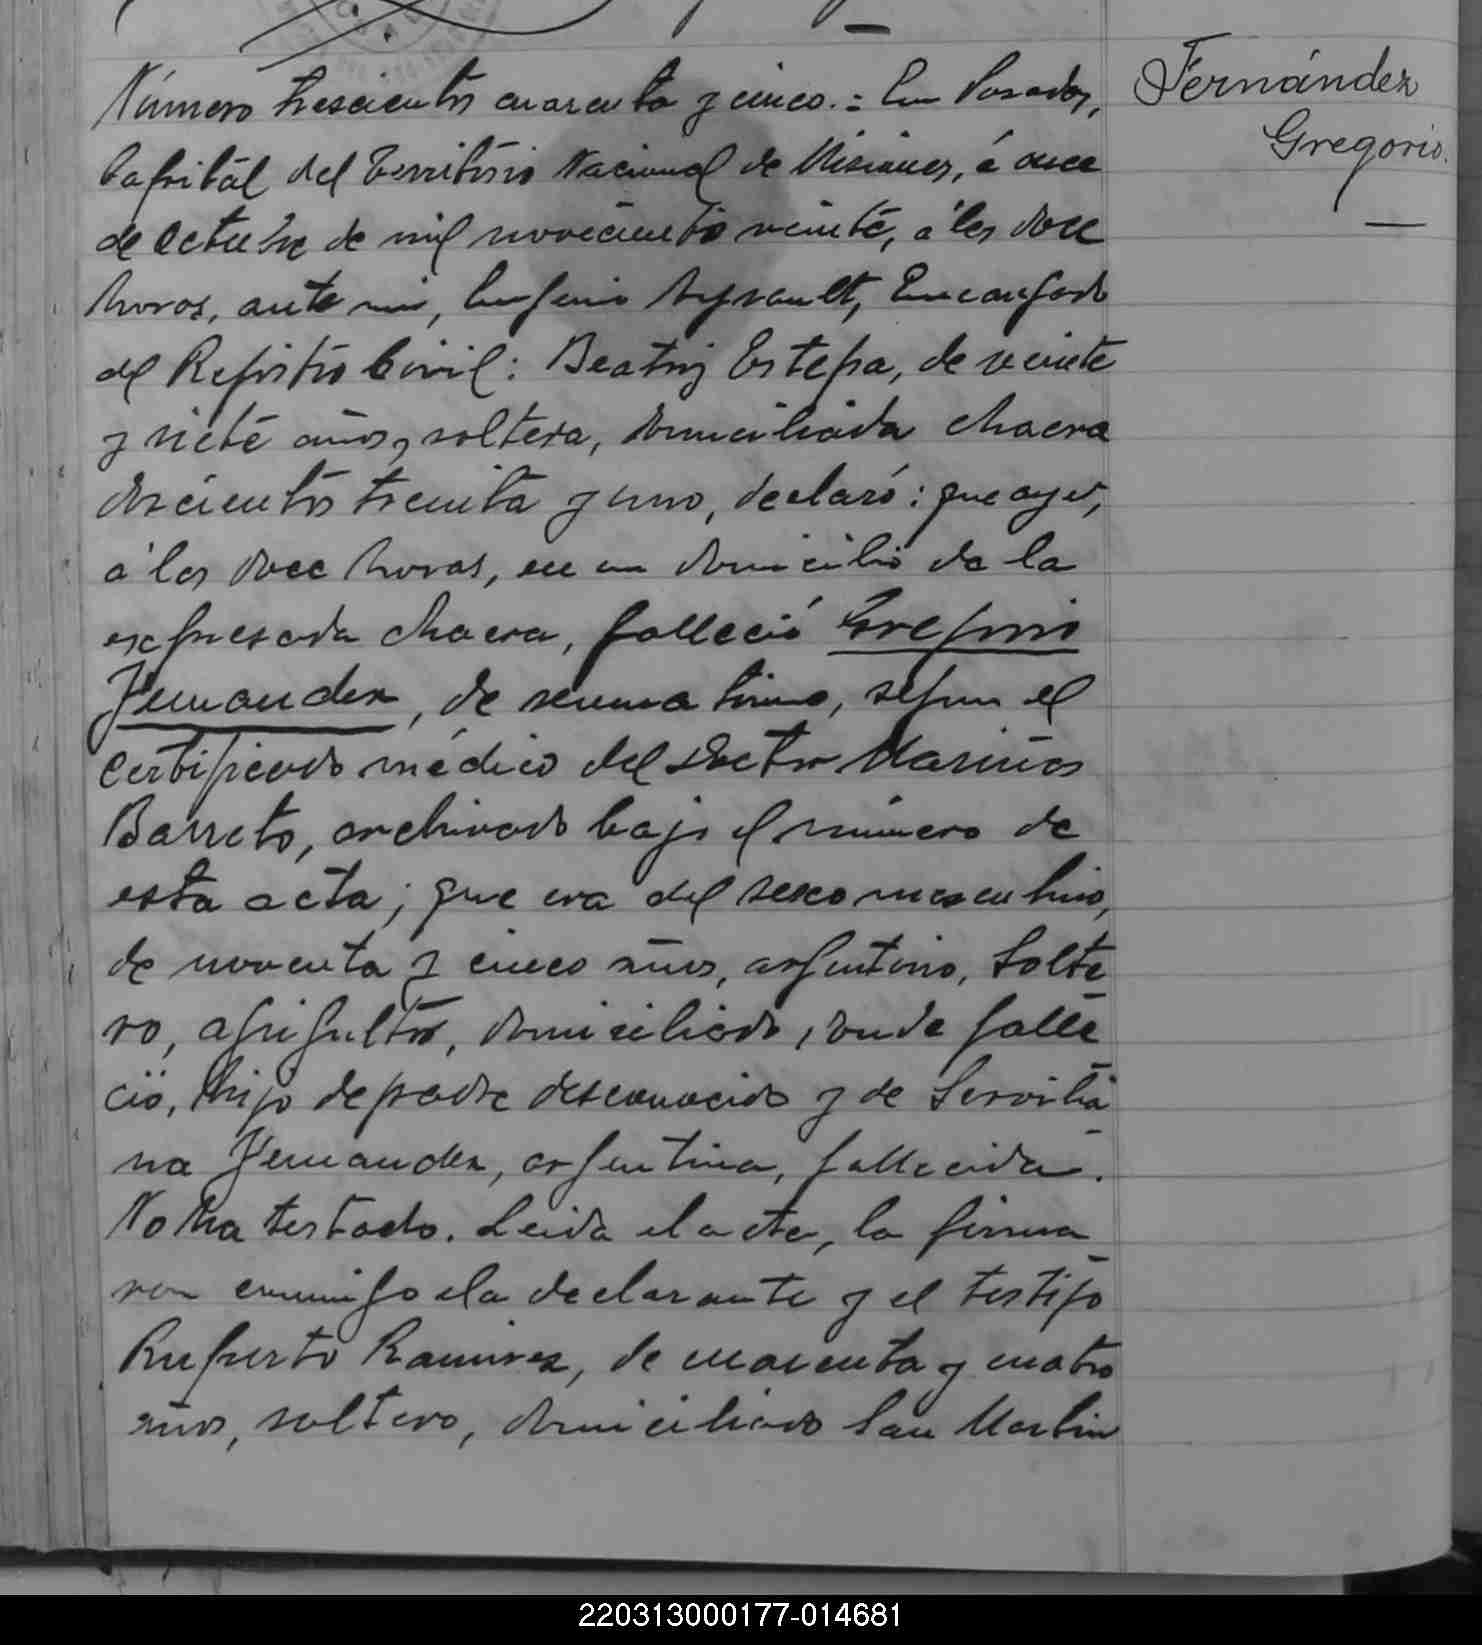 Número trescientos cuarenta y cinco.= En Posadas,
Capital del Territorio Nacional de Misiones, á once
de Octubre de mil novecientos veinte, á las doce
horas, ante mi, Eugenio Ayrault, Encargado
del Registro Civil: Beatriz Estepa, de veinte
y siete años, soltera, domiciliada chacra
doscientos treinta y uno, declaró: que ayer,
á las doce horas, en un domicilio de la
expresada chacra, falleció Gregorio
Fernandez, de, segun el
certificado médico del doctor Mariños
Barreto, archivado bajo el número de
esta acta; que era del sexo masculino,
de noventa y cinco años, argentino, solte
ro, agricultor, domiciliado, donde falle
ció, hijo de padre desconocido y de Servilia
na Fernandez, argentina, fallecida.
No ha testado. Leida el acta, la firma
ron conmigo la declarante y el testigo
Ruperto Ramirez, de cuarenta y cuatro
años, soltero, domiciliado San Martin
Fernández
Gregorio.
220313000177-014681